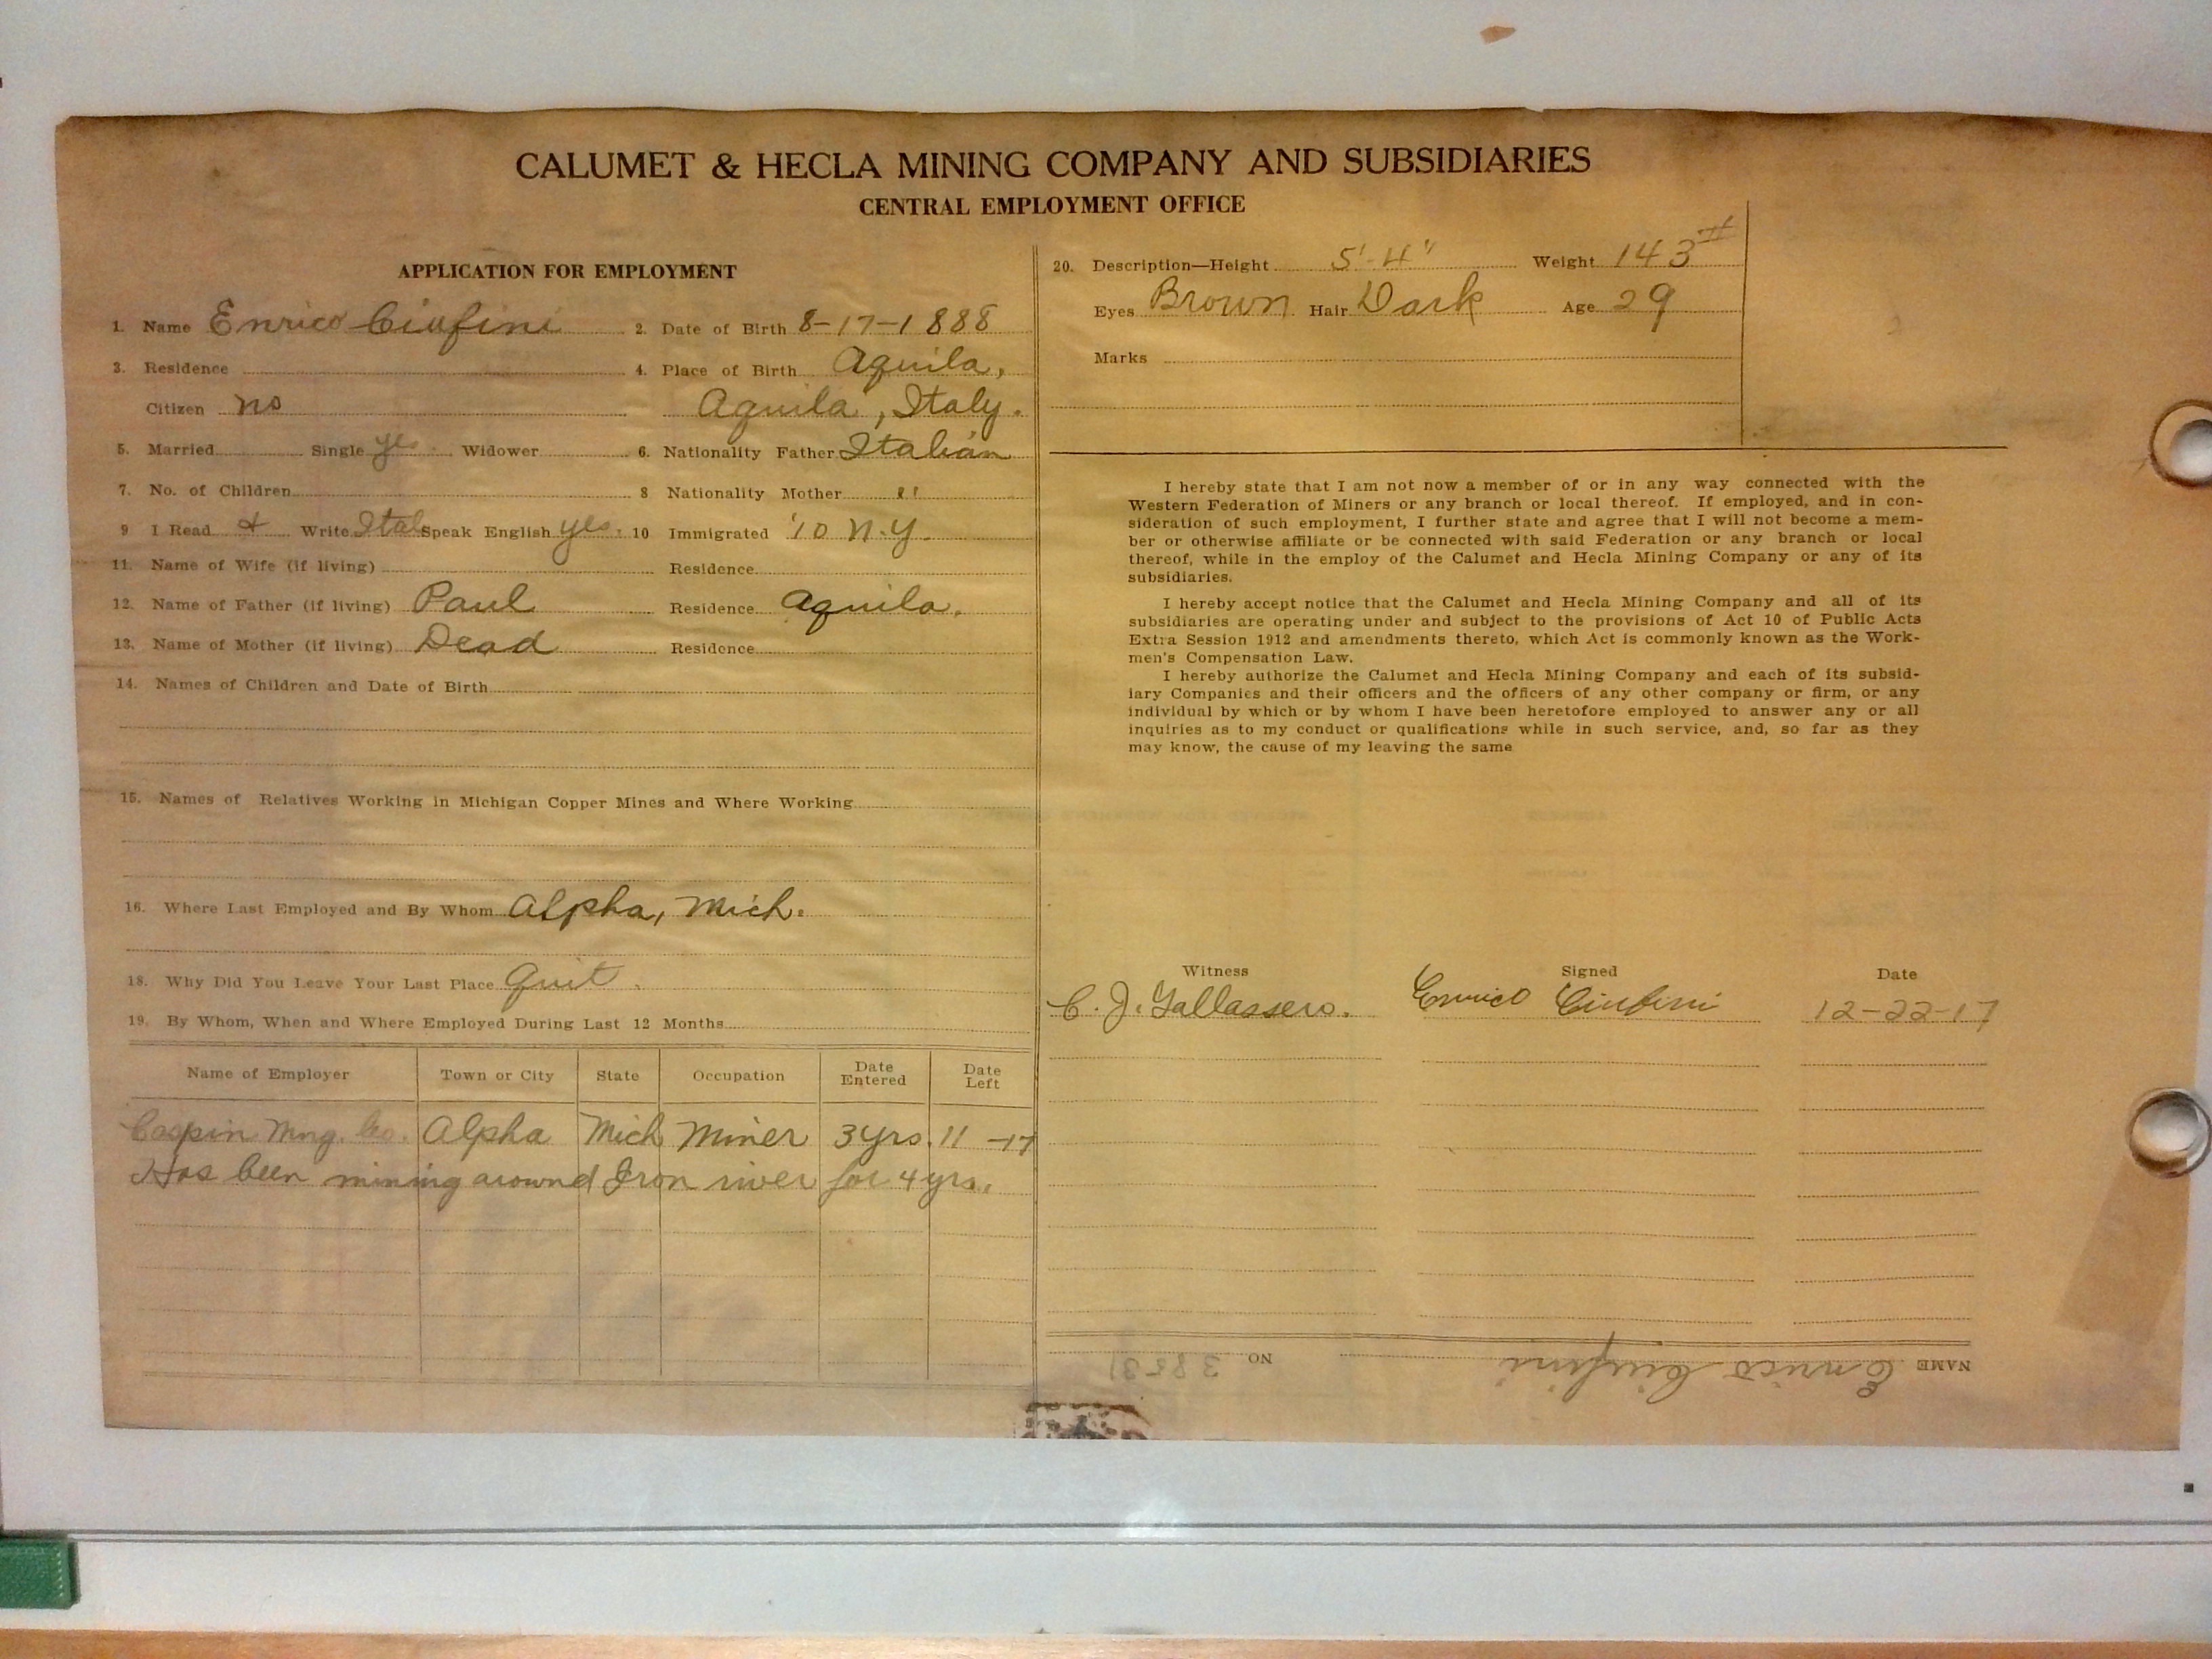 CALUMET & HECLA MINING COMPANY AND SUBSIDIARIES
CENTRAL EMPLOYMENT OFFICE
APPLICATION FOR EMPLOYMENT
1. Name Enrico Ciufini 2. Date of Birth 8-17-1888
3. Residence 4. Place of Birth Aquila,
Citizen no Aquila, Italy.
5. Married Single yes. Widower 6. Nationality Father Italian
7. No. of Children 8 Nationality Mother "
9 I Read & Write Ital Speak English yes. 10 Immigrated '10 N.Y.
11. Name of Wife (if living) Residence
12. Name of Father (if living) Paul Residence Aquila.
13. Name of Mother (if living) Dead Residence
14. Names of Children and Date of Birth
15. Names of Relatives Working in Michigan Copper Mines and Where Working
16. Where Last Employed and By Whom Alpha, Mich.
18. Why Did You Leave Your Last Place Quit.
19. By Whom, When and Where Employed During Last 12 Months
Name of Employer Town or City State Occupation Date Entered Date Left
Caspin Mng. Co. Alpha Mich Miner 3 yrs. 11 -17
Has been mining around Iron river for 4 yrs.
20. Description—Height 5'-4" Weight 143#
Eyes Brown Hair Dark Age 29
Marks
I hereby state that I am not now a member of or in any way connected with the
Western Federation of Miners or any branch or local thereof. If employed, and in con-
sideration of such employment, I further state and agree that I will not become a mem-
ber or otherwise affiliate or be connected with said Federation or any branch or local
thereof, while in the employ of the Calumet and Hecla Mining Company or any of its
subsidiaries.
I hereby accept notice that the Calumet and Hecla Mining Company and all of its
subsidiaries are operating under and subject to the provisions of Act 10 of Public Acts
Extra Session 1912 and amendments thereto, which Act is commonly known as the Work-
men's Compensation Law.
I hereby authorize the Calumet and Hecla Mining Company and each of its subsid-
iary Companies and their officers and the officers of any other company or firm, or any
individual by which or by whom I have been heretofore employed to answer any or all
inquiries as to my conduct or qualifications while in such service, and, so far as they
may know, the cause of my leaving the same
Witness Signed Date
C. J. Gallassero. Enrico Ciufini 12-22-17
NAME Enrico Ciufini NO